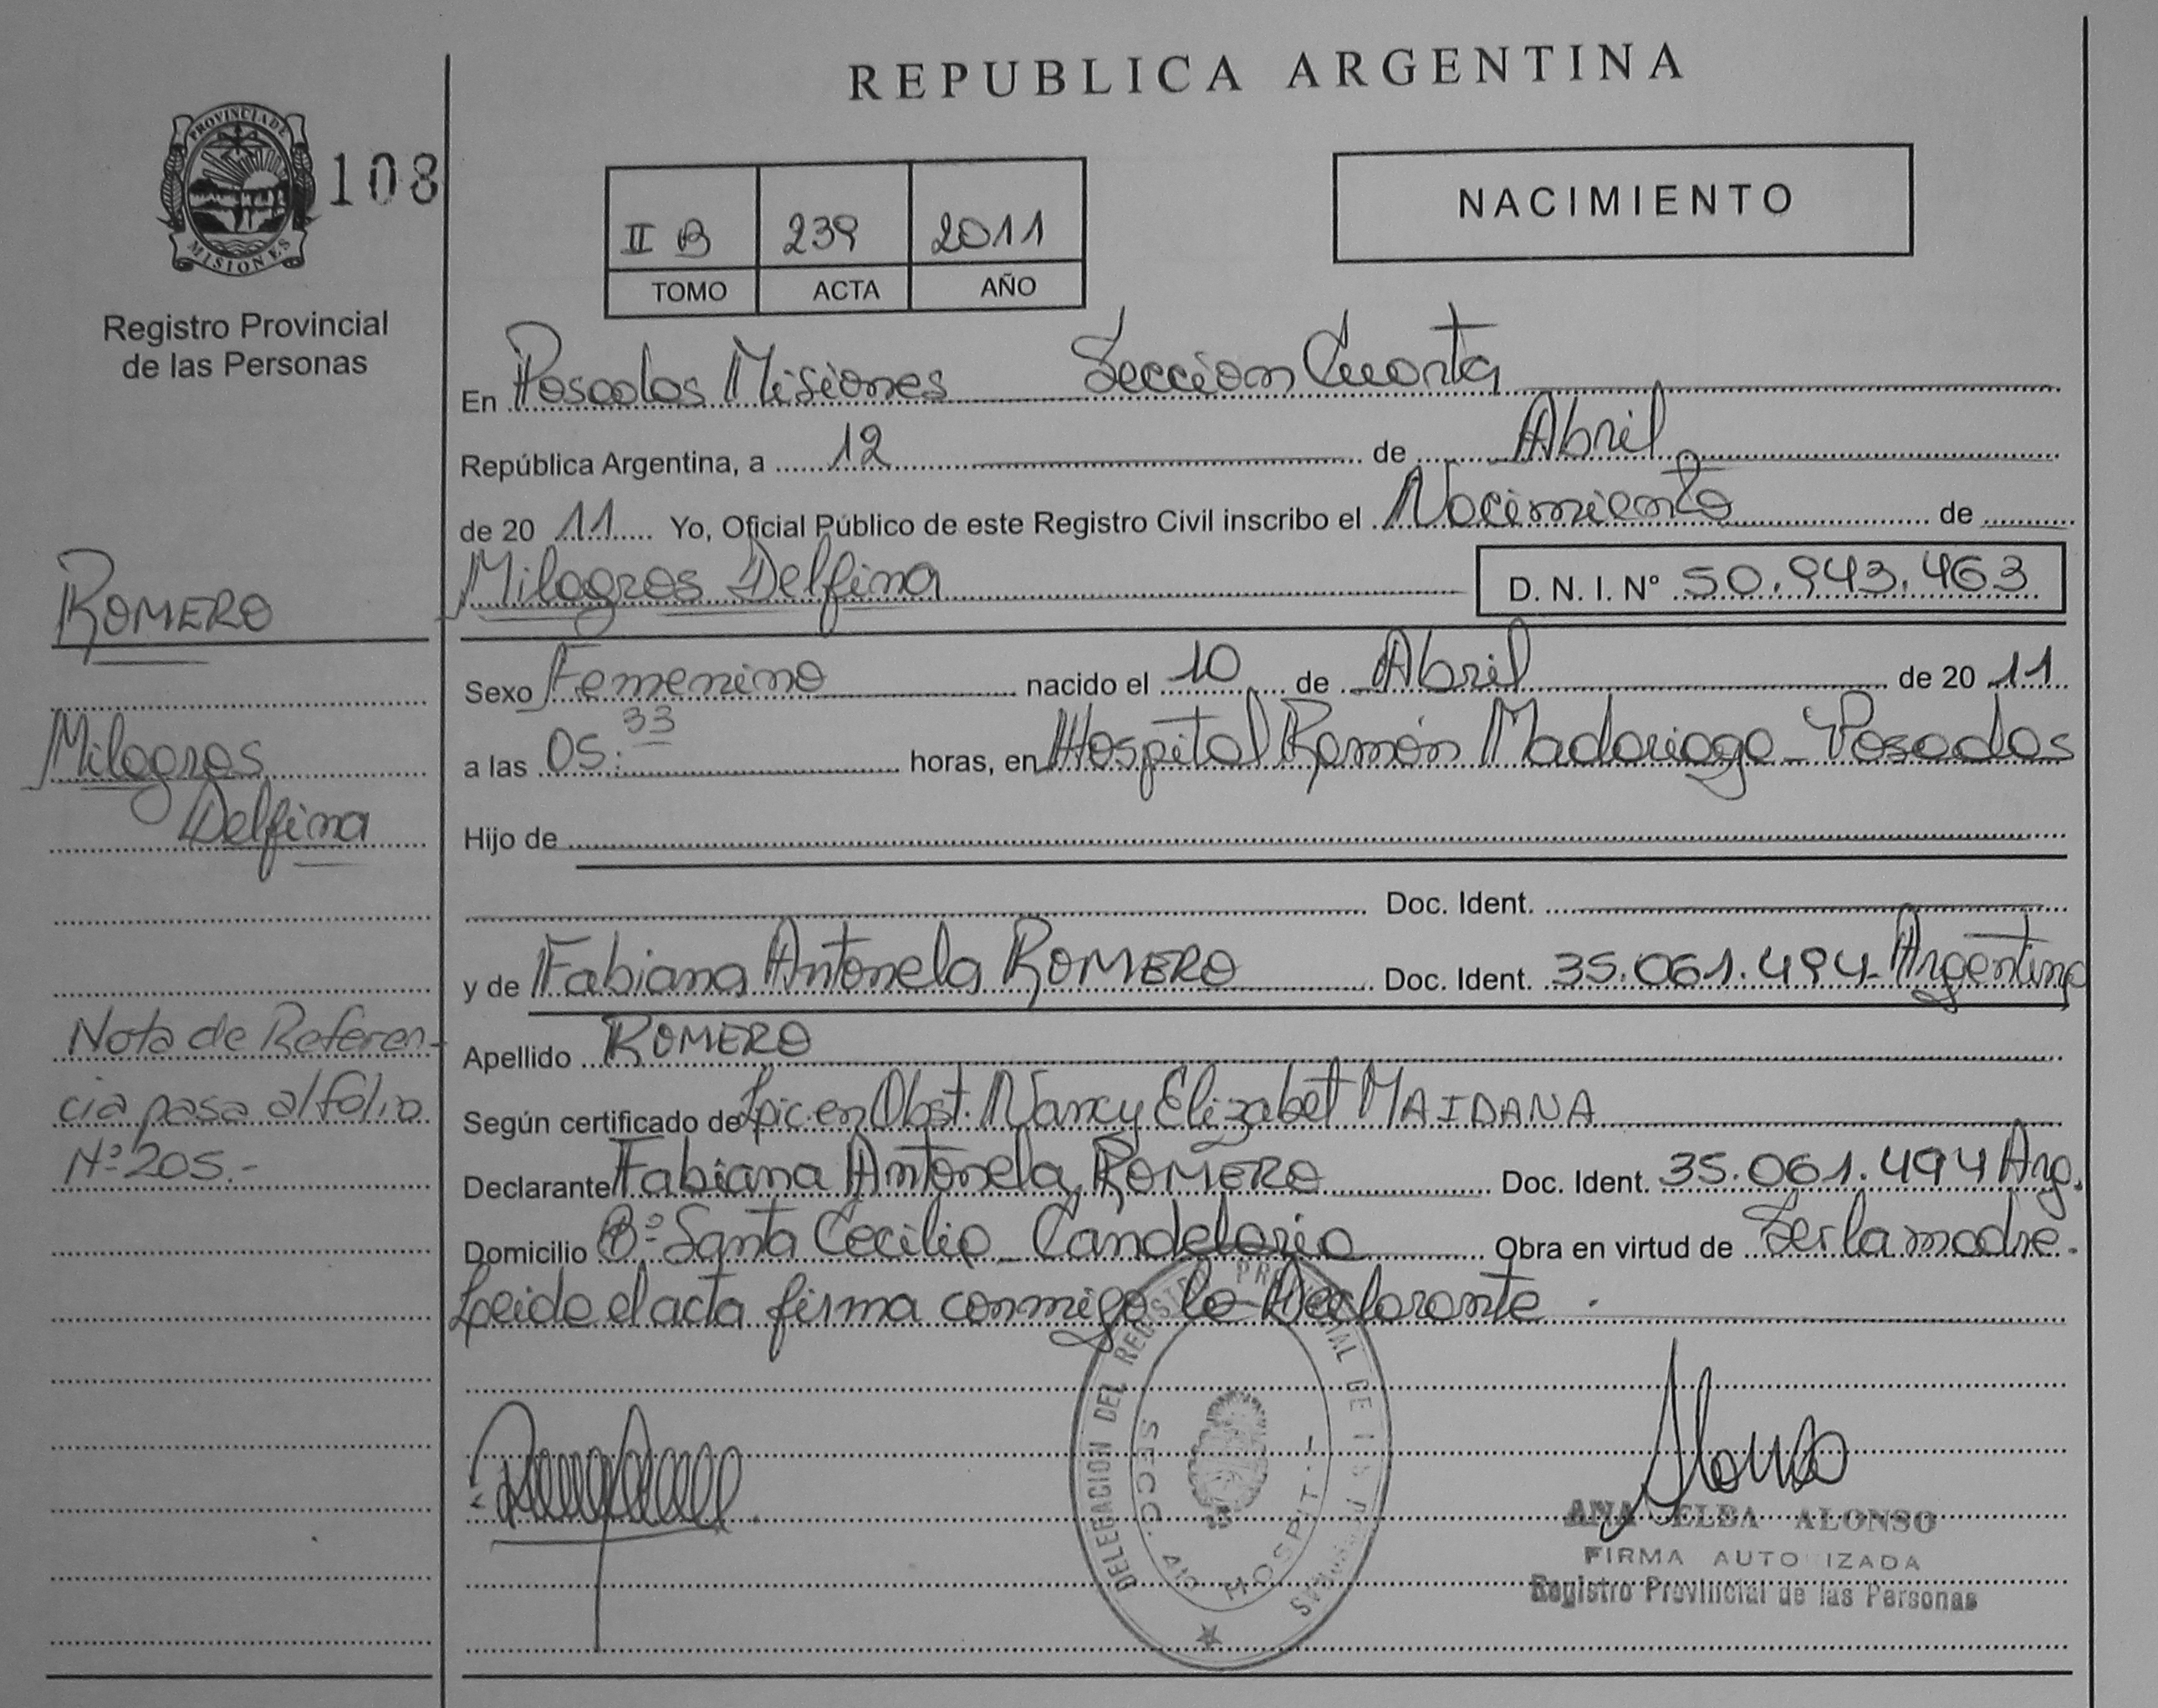 REPUBLICA ARGENTINA
PROVINCIA DE
MISIONES
108
Registro Provincial
de las Personas
II B 239 2011
TOMO ACTA AÑO
NACIMIENTO
En Posadas Misiones Sección Cuarta
República Argentina, a 12 de Abril
de 20 11 Yo, Oficial Público de este Registro Civil inscribo el Nacimiento de
Milagros Delfina D. N. I. Nº 50.943.463
Sexo Femenino nacido el 10 de Abril de 20 11
a las 05:33 horas, en Hospital Ramón Madariaga - Posadas
Hijo de
Doc. Ident.
y de Fabiana Antonela ROMERO Doc. Ident. 35.061.494 - Argentina
Apellido ROMERO
Según certificado de Lic. en Obst. Nancy Elizabet MAIDANA
Declarante Fabiana Antonela ROMERO Doc. Ident. 35.061.494 Arg.
Domicilio Bº Santa Cecilia - Candelaria Obra en virtud de Ser la madre.
Leida el acta firma conmigo la Declarante.
ROMERO
Milagros
Delfina
Nota de Referen-
cia pasa al folio
Nº 205.-
DELEGACION DEL REGISTRO PROVINCIAL DE
SECC. 4ta HOSPIT
Alonso
ANA ELBA ALONSO
FIRMA AUTO IZADA
Registro Provincial de las Personas